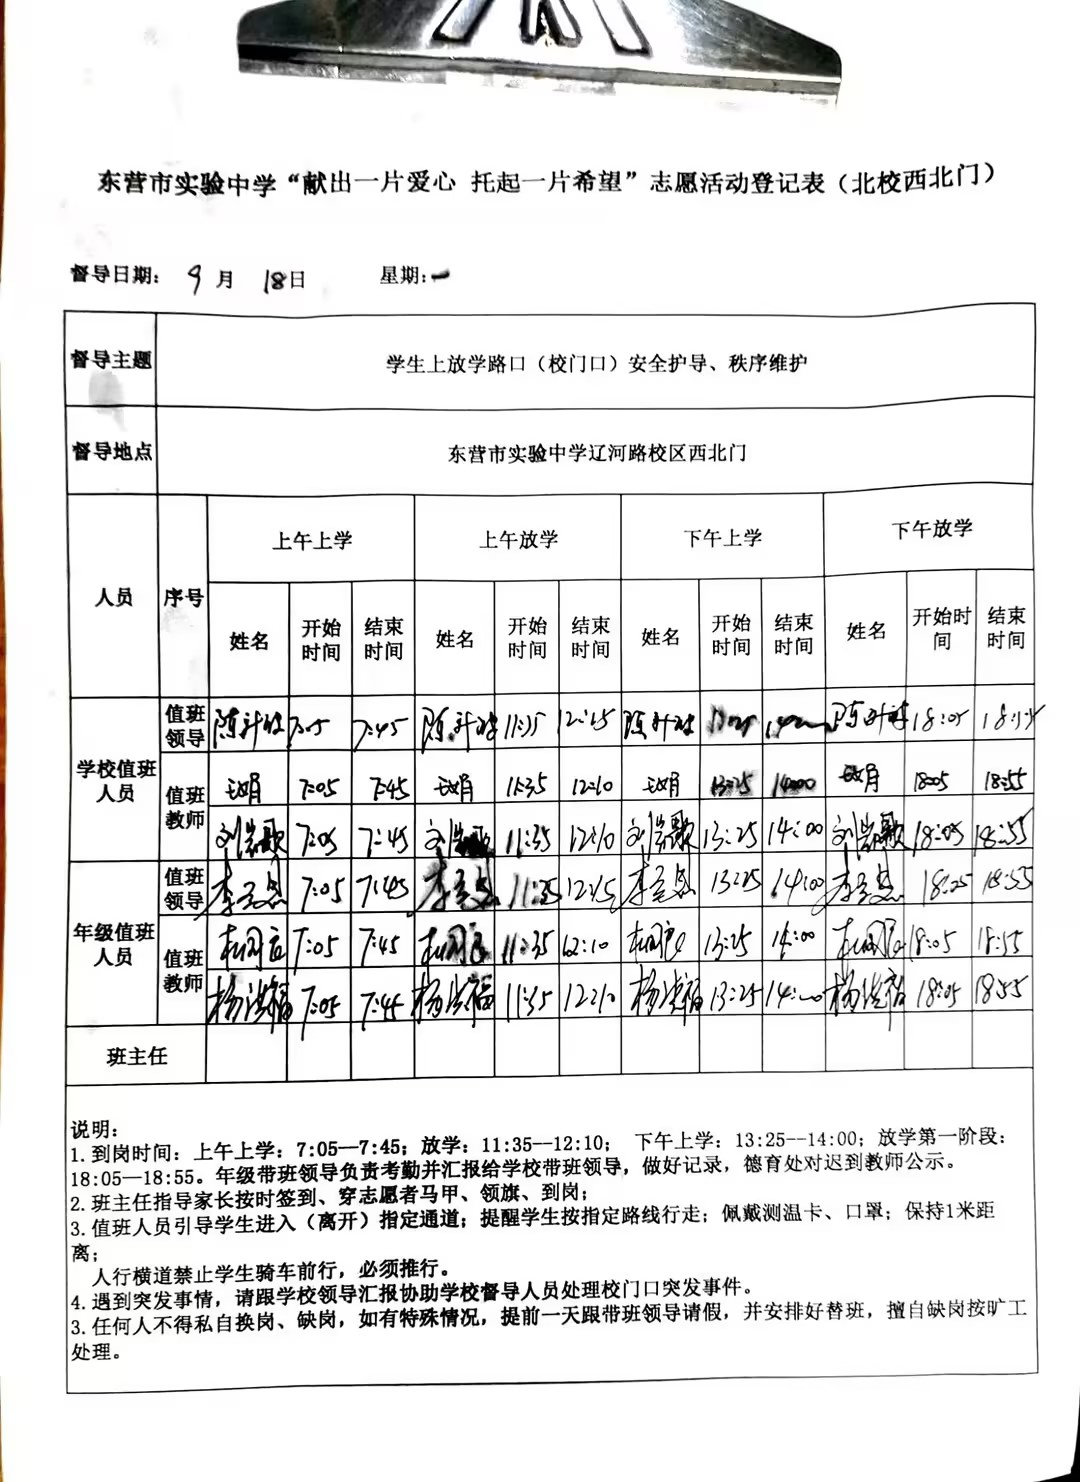 东营市实验中学“献出一片爱心 托起一片希望”志愿活动登记表（北校西北门）
督导日期： 9月 18日 星期：一
督导主题 学生上放学路口（校门口）安全护导、秩序维护
督导地点 东营市实验中学辽河路校区西北门
人员 序号 上午上学 上午放学 下午上学 下午放学
姓名 开始时间 结束时间 姓名 开始时间 结束时间 姓名 开始时间 结束时间 姓名 开始时间 结束时间
学校值班人员 值班领导 7:05 7:45 11:35 18:05
值班教师 7:05 7:45 11:35 12:10 13:25 14:00 18:05 18:55
刘浩歌 7:05 7:45 刘浩歌 11:35 12:10 刘浩歌 13:25 14:00 刘浩歌 18:05 18:55
年级值班人员 值班领导 7:05 7:45 11:35 12:15 13:25 14:00 18:05 18:55
值班教师 7:05 7:45 11:35 12:10 13:25 14:00 18:05 18:55
杨洪福 7:05 7:45 杨洪福 11:35 12:10 杨洪福 13:25 14:00 杨洪福 18:05 18:55
班主任
说明：
1.到岗时间：上午上学：7:05—7:45；放学：11:35--12:10； 下午上学：13:25--14:00；放学第一阶段：
18:05—18:55。年级带班领导负责考勤并汇报给学校带班领导，做好记录，德育处对迟到教师公示。
2.班主任指导家长按时签到、穿志愿者马甲、领旗、到岗；
3.值班人员引导学生进入（离开）指定通道；提醒学生按指定路线行走；佩戴测温卡、口罩；保持1米距
离；
人行横道禁止学生骑车前行，必须推行。
4.遇到突发事情，请跟学校领导汇报协助学校督导人员处理校门口突发事件。
3.任何人不得私自换岗、缺岗，如有特殊情况，提前一天跟带班领导请假，并安排好替班，擅自缺岗按旷工
处理。